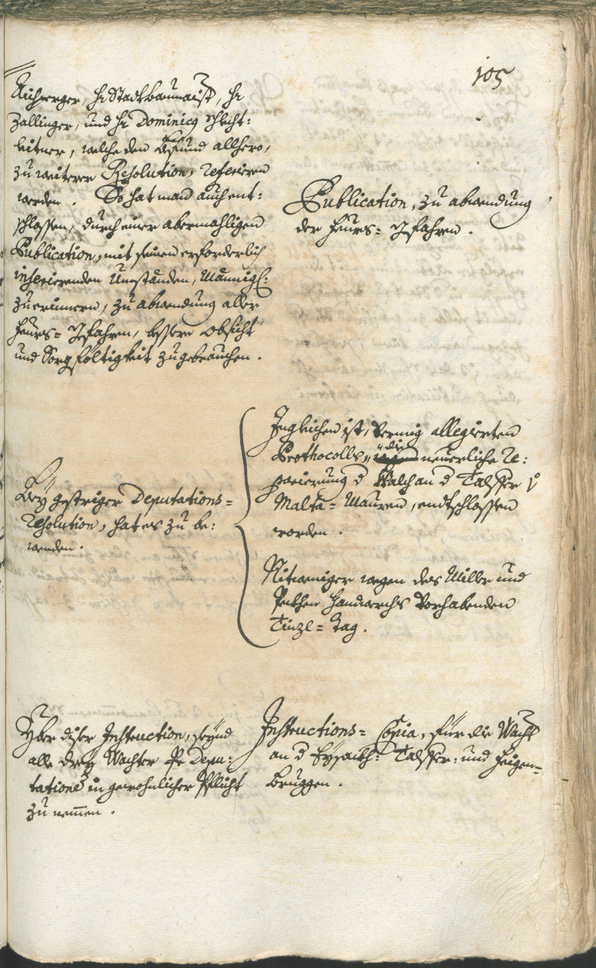 105
Aichperger, H: Stadtbaumaist, H:
Zallinger, und H: Dominicq Schlicht:
leitner, welche den Befund allhero,
zu weiterer Resolution, referiren
werden. So hat man auch ent:
schlossen, durch einer abermahligen
Publication, mit seinen erforderlich
inserierenden Umständen, Männigl:
zuerinnern, zu abwendung aller
Feurs= Gfahren, bessere obsicht
und Sorgfältigkeit zu gebrauchen.
Publication, zu abwendung
der Feurs= Gfahren.
Bey gestriger Deputations=
Resolution, hat es zu be:
wenden.
Ingleichen ist, vermig allegierten
Prothocolls, die neuerliche Re:
parierung d an d Talfer
Malta= Mauren, entschlossen
worden.
Nitweniger wegen des Miller und
Pekhen Handwerchs vorhabenden
Tinzl= Tag.
Yber diser Instruction, seynd
alle drey Wachter Pr Depu:
tationē in gewohnlicher Pflicht
zu nemmen.
Instructions= Copia, für die Wacht
an d Eysackh: Talfer: und Feigen=
bruggen.